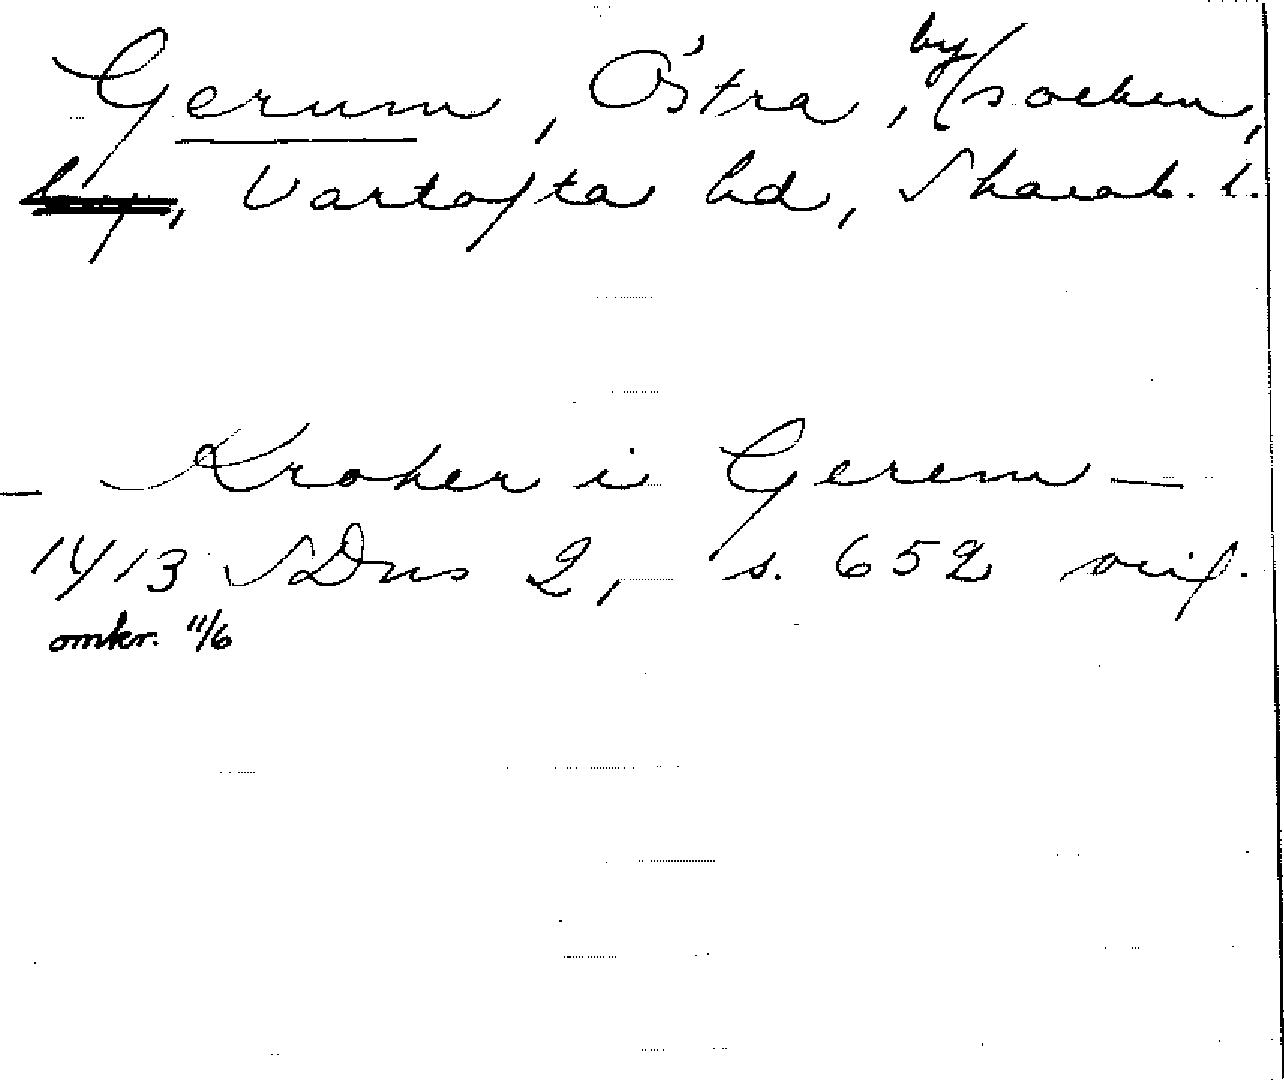 Gerum, Östra, by/socken,
by, Vartofta hd, Skarab. l.
– Kroker i Gerem –
1413 SDns 2, s. 652 orig.
omkr. 11/6